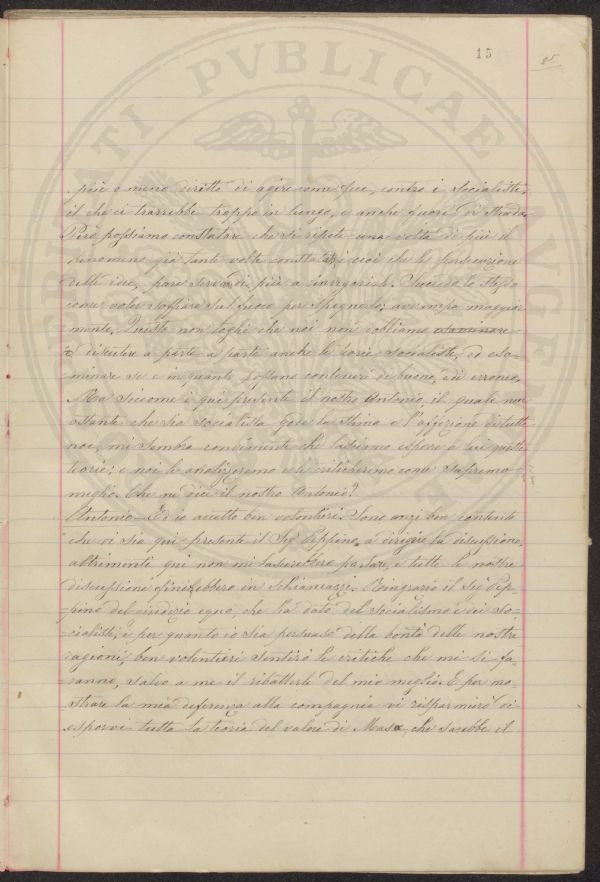 15 85
più o meno diritto di agire come fece, contro i socialisti,
il che ci trarrebbe troppo in lungo, e anche fuori di strada.
Però possiamo constatare che si ripete una volta di più il
fenomeno già tante volte constatato; cioè che la persecuzione
delle idee, pare serva di più a invigorirle. Succede lo stesso
come voler soffiare sul fuoco per spegnerlo; avvampa maggior-
mente. Questo non toglie che noi non vogliamo esaminare
e discutere a parte a parte anche le teorie socialiste, ed esa-
minare se e in quanto possano contenere di buono, e di erroneo.
Ma siccome è qui presente il nostro Antonio il quale non
ostante che sia socialista gode la stima e l'affezione di tutti
noi, mi sembra conveniente che lasciamo esporre a lui queste
teorie; e noi le analizzeremo e le criticheremo come sapremo
meglio. Che ne dice il nostro Antonio?
Antonio – Ed io accetto ben volontieri. Sono anzi ben contento
che vi sia qui presente il Sig. Peppino a dirigere la discussione,
altrimenti qui non mi lascierebbero parlare, e tutte le nostre
discussioni finirebbero in schiamazzi. Ringrazio il Sig. Pep-
pino del giudizio equo, che ha dato del socialismo e dei so-
cialisti, e per quanto io sia persuaso della bontà delle nostre
ragioni, ben volentieri sentirò le critiche che mi si fa-
ranno, salvo a me il ribatterle del mio meglio. E per mo-
strare la mia deferenza alla compagnia vi risparmierò di
esporvi tutta la teoria del valore di Marx, che sarebbe il